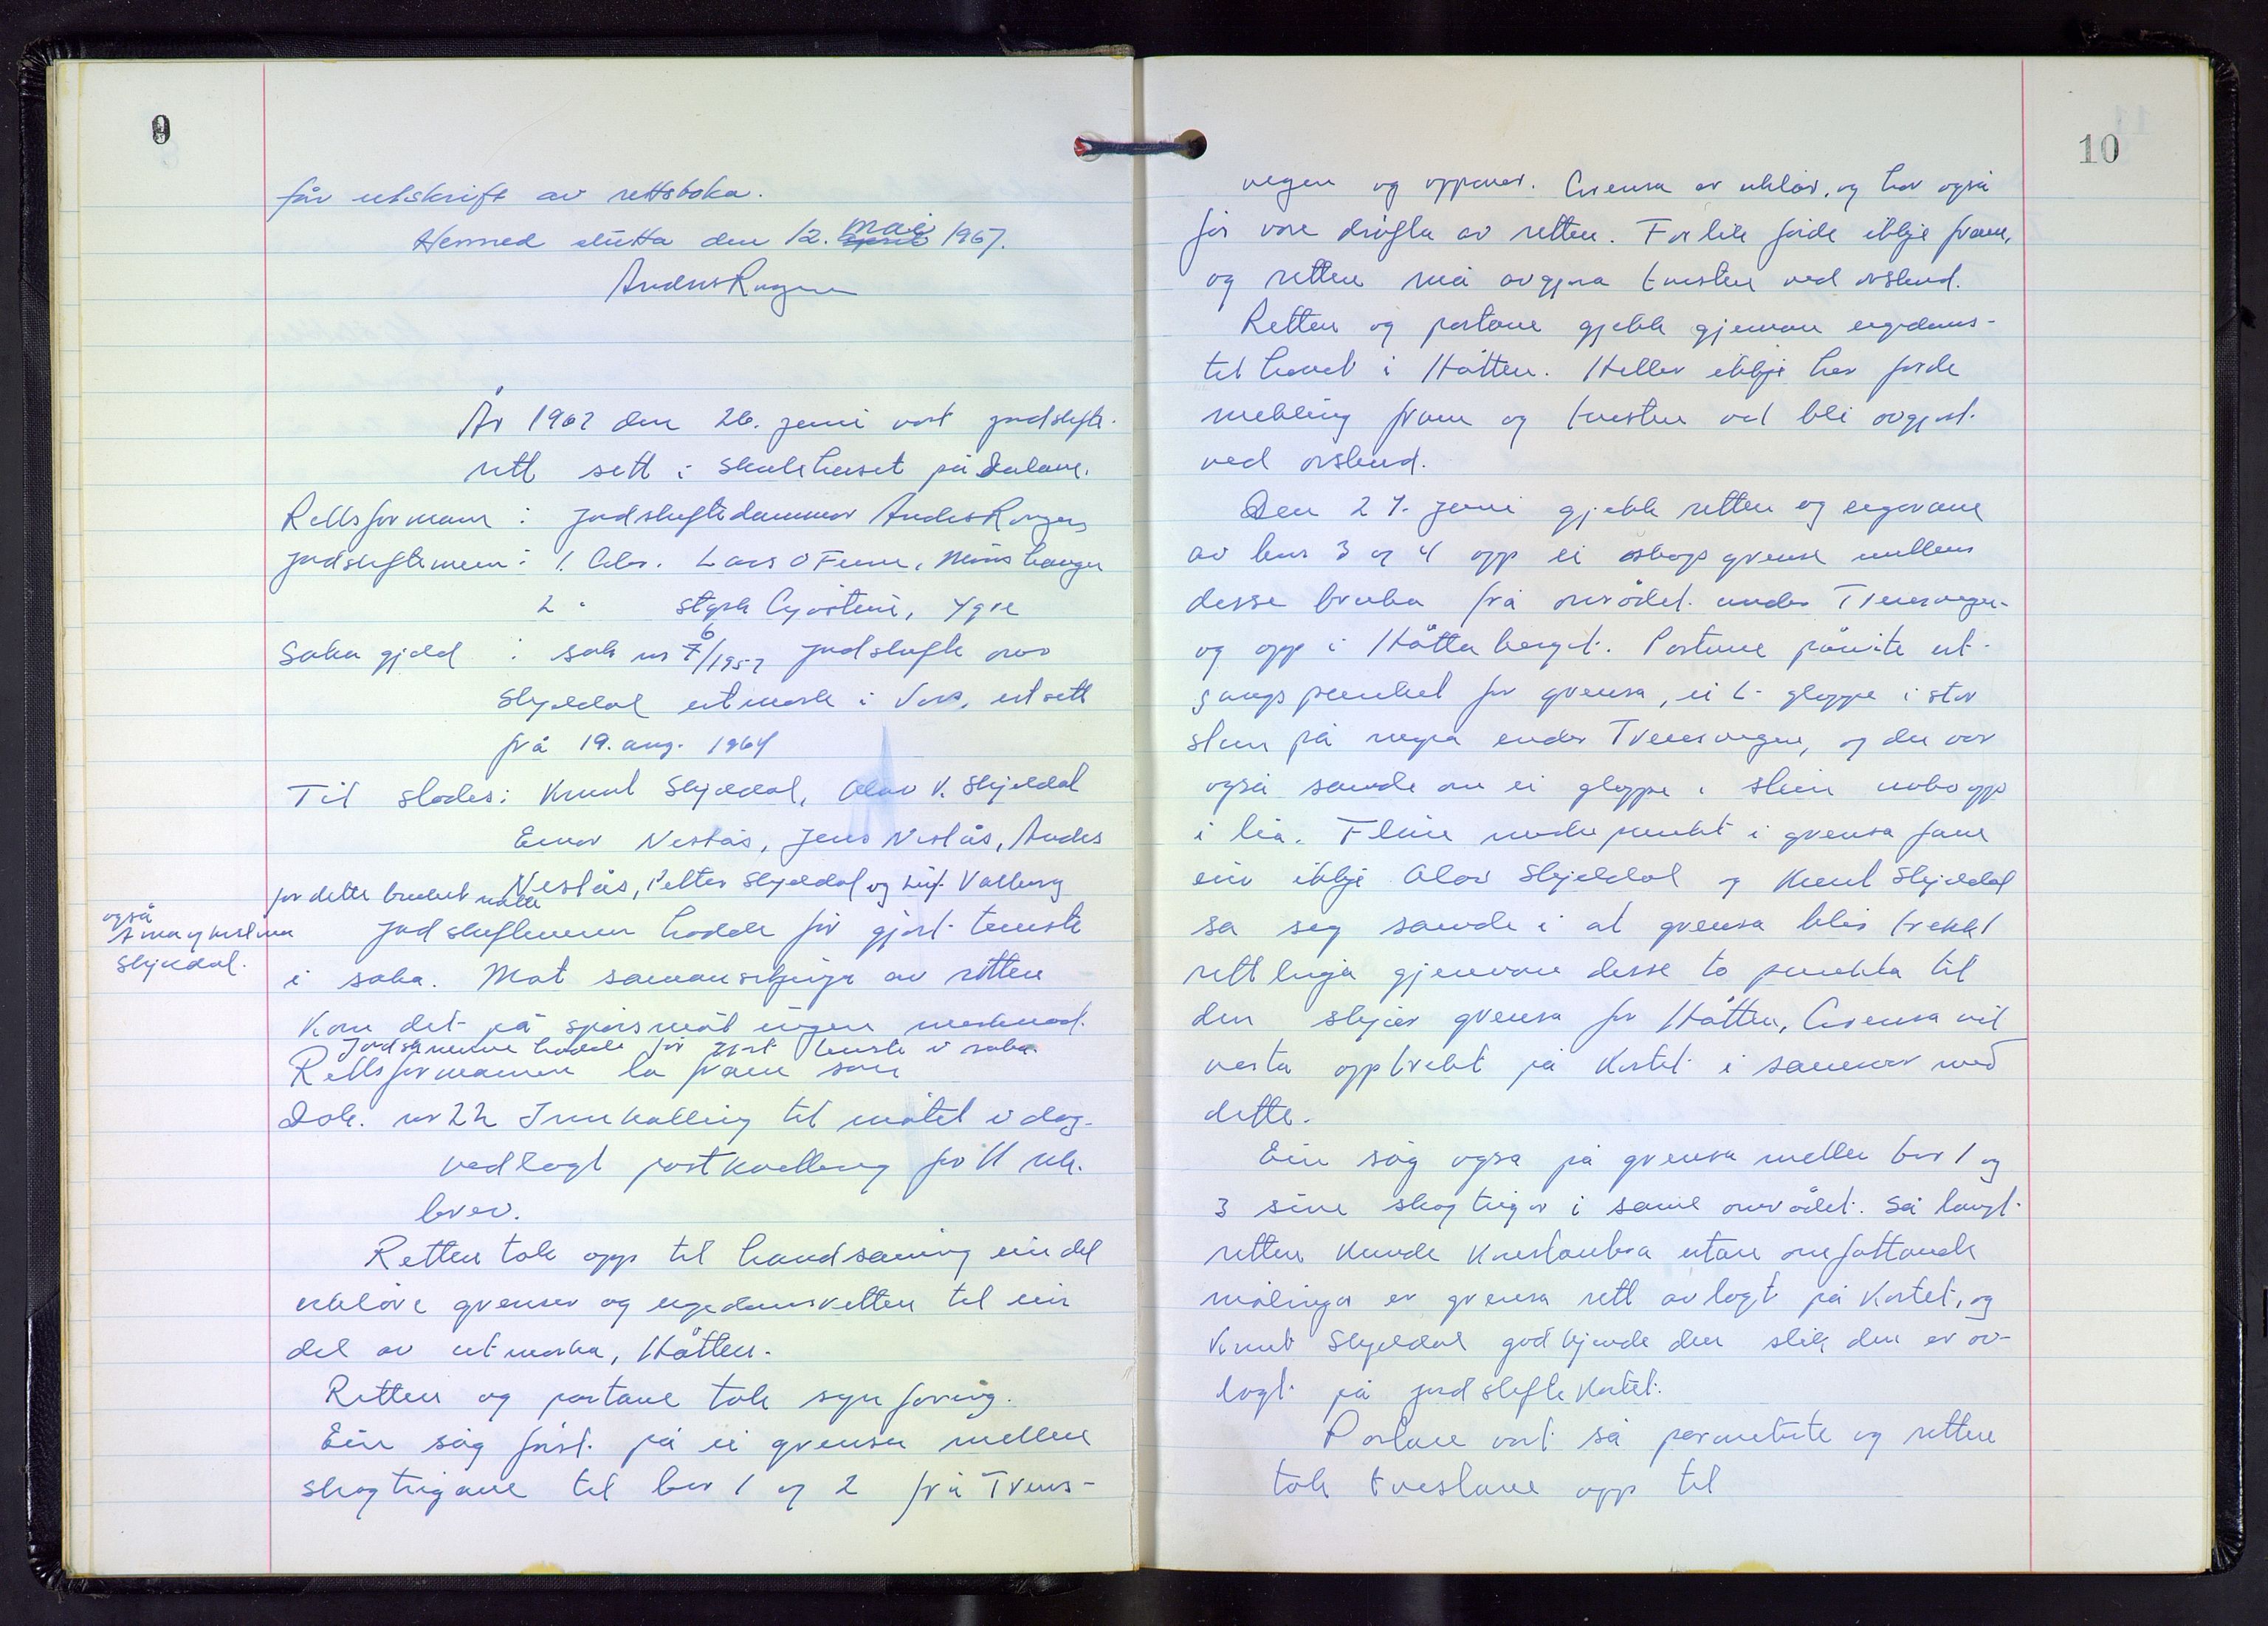 9
får utskrift av rettsboka.
Hermed slutta den 12. mai 1967.
Anders Ragnes
År 1967 den 26. juni vart jordskifte-
rett sett i skulehuset på Dalane.
Rettsformann: jordskiftedommar Anders
jordskiftemenn: 1. Abr. Lars O Finne,
2 " Styrk Gjøstein, Ygre
Saka gjeld : sak nr 6/1957 jordskifte over
Skjeldal utmark i Voss, utsett
frå 19. aug. 1964
Til stades: Knut Skjeldal, Olav K. Skjeldal
Einar Nestås, Jens Nestås, Anders
Nestås, Petter Skjeldal og Leif Valberg
for dette bruket møtte
også
Anna og Kristina
Skjeldal.
Jordskiftemenn hadde før gjort teneste
i saka. Mot samansetjinga av retten
kom det på spørsmål ingen merknad.
Jordskmenn hadde før gjort teneste i saka
Rettsformannen la fram som
Dok. nr 22 Innkalling til møtet i dag
vedlagt postkvittering for 11 rek.
brev.
Retten tok opp til handsaming ein del
uklåre grenser og eigedomsretten til ein
del av utmarka, Håtten.
Retten og partane tok synfaring.
Ein såg først på ei grensa mellom
skogteigane til bnr 1 og 2 frå Tvers-
10
vegen og oppover. Grensa er uklår, og har også
før vore drøfta av retten. Forlik førde ikkje fram,
og retten må avgjera tvisten ved orskurd.
Retten og partane gjekk gjennom eigedoms-
tilhøvet i Håtten. Heller ikkje her førde
mekling fram og tvisten vil bli avgjort
ved orskurd.
Den 27. juni gjekk retten og eigarane
av bnr 3 og 4 opp ei skogsgrense mellom
desse bruka frå området under Tversvegen
og opp i Håttaberget. Partane påviste ut-
gangspunktet for grensa, ei L-gloppe i stor
stein på neset under Tversvegen, og dei var
også samde om ei gloppe i stein noko opp
i lia. Fleire merkepunkt i grensa fann
ein ikkje. Olav Skjeldal og Knut Skjeldal
sa seg samde i at grensa blir trekt
rettlinja gjennom desse to punkta til
den skjer grensa for Håtten. Grensa vil
verta opptrekt på kartet i samsvar med
dette.
Ein såg også på grensa mellom bnr 1 og
3 sine skogteigar i same området. Så langt
retten kunde konstantera utan omfattande
målingar er grensa rett avlagt på kartet, og
Knut Skjeldal godkjende den slik den er av-
lagt på jordskiftekartet.
Partane vart så permitterte og retten
tok tvistane opp til